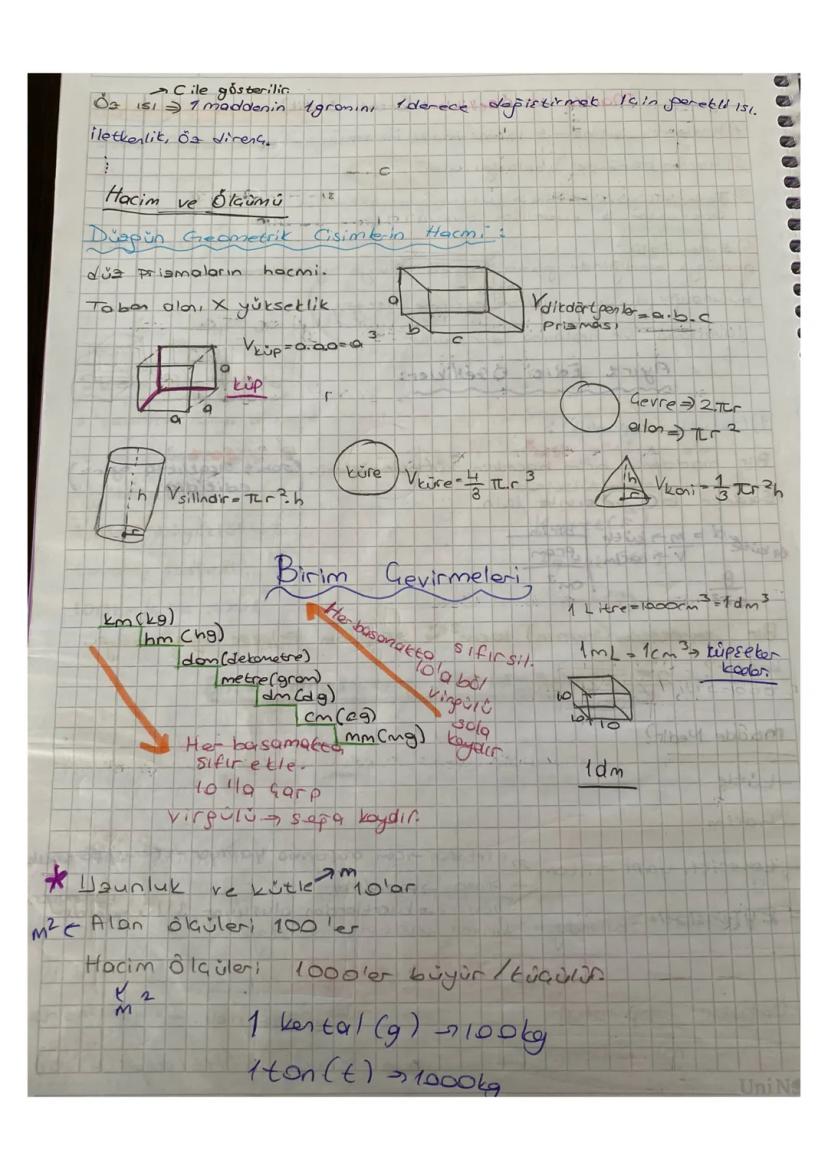 → C ile gösterilir
Öz ısı ⇒ 1 maddenin 1gramını 1derece değiştirmek için gerekli ısı.
iletkenlik, Öz direnç.
⋮
Hacim ve Ölçümü
Düzgün Geometrik Cisimlerin Hacmi:
düz prizmaların hacmi.
Taban alanı X yükseklik
a
b
c
Vdikdörtgenler = a.b.c
Prizması
Vküp = a.a.a = a³
küp
a
a
a
r
Çevre ⇒ 2πr
alan ⇒ πr²
h
r
Vsilindir = πr².h
küre
Vküre = 4/3 π.r³
h
r
Vkoni = 1/3 πr²h
Birim Çevirmeleri
km(kg)
hm(hg)
dam(dekametre)
metre(gram)
dm(dg)
cm(cg)
mm(mg)
Her basamakta
sıfır sil.
10'a böl
virgülü
sola
kaydır.
Her basamakta
sıfır ekle.
10'la çarp
virgülü → sağa kaydır.
1 Litre = 1000cm³ = 1dm³
1mL = 1cm³ → küpşeker
kadar.
10
10
10
1dm
* Uzunluk ve kütle → m 10'ar
m² ← Alan ölçüleri 100'er
Hacim ölçüleri 1000'er büyür /küçülür.
m²
1 kental(g) → 100kg
1ton(t) → 1000kg